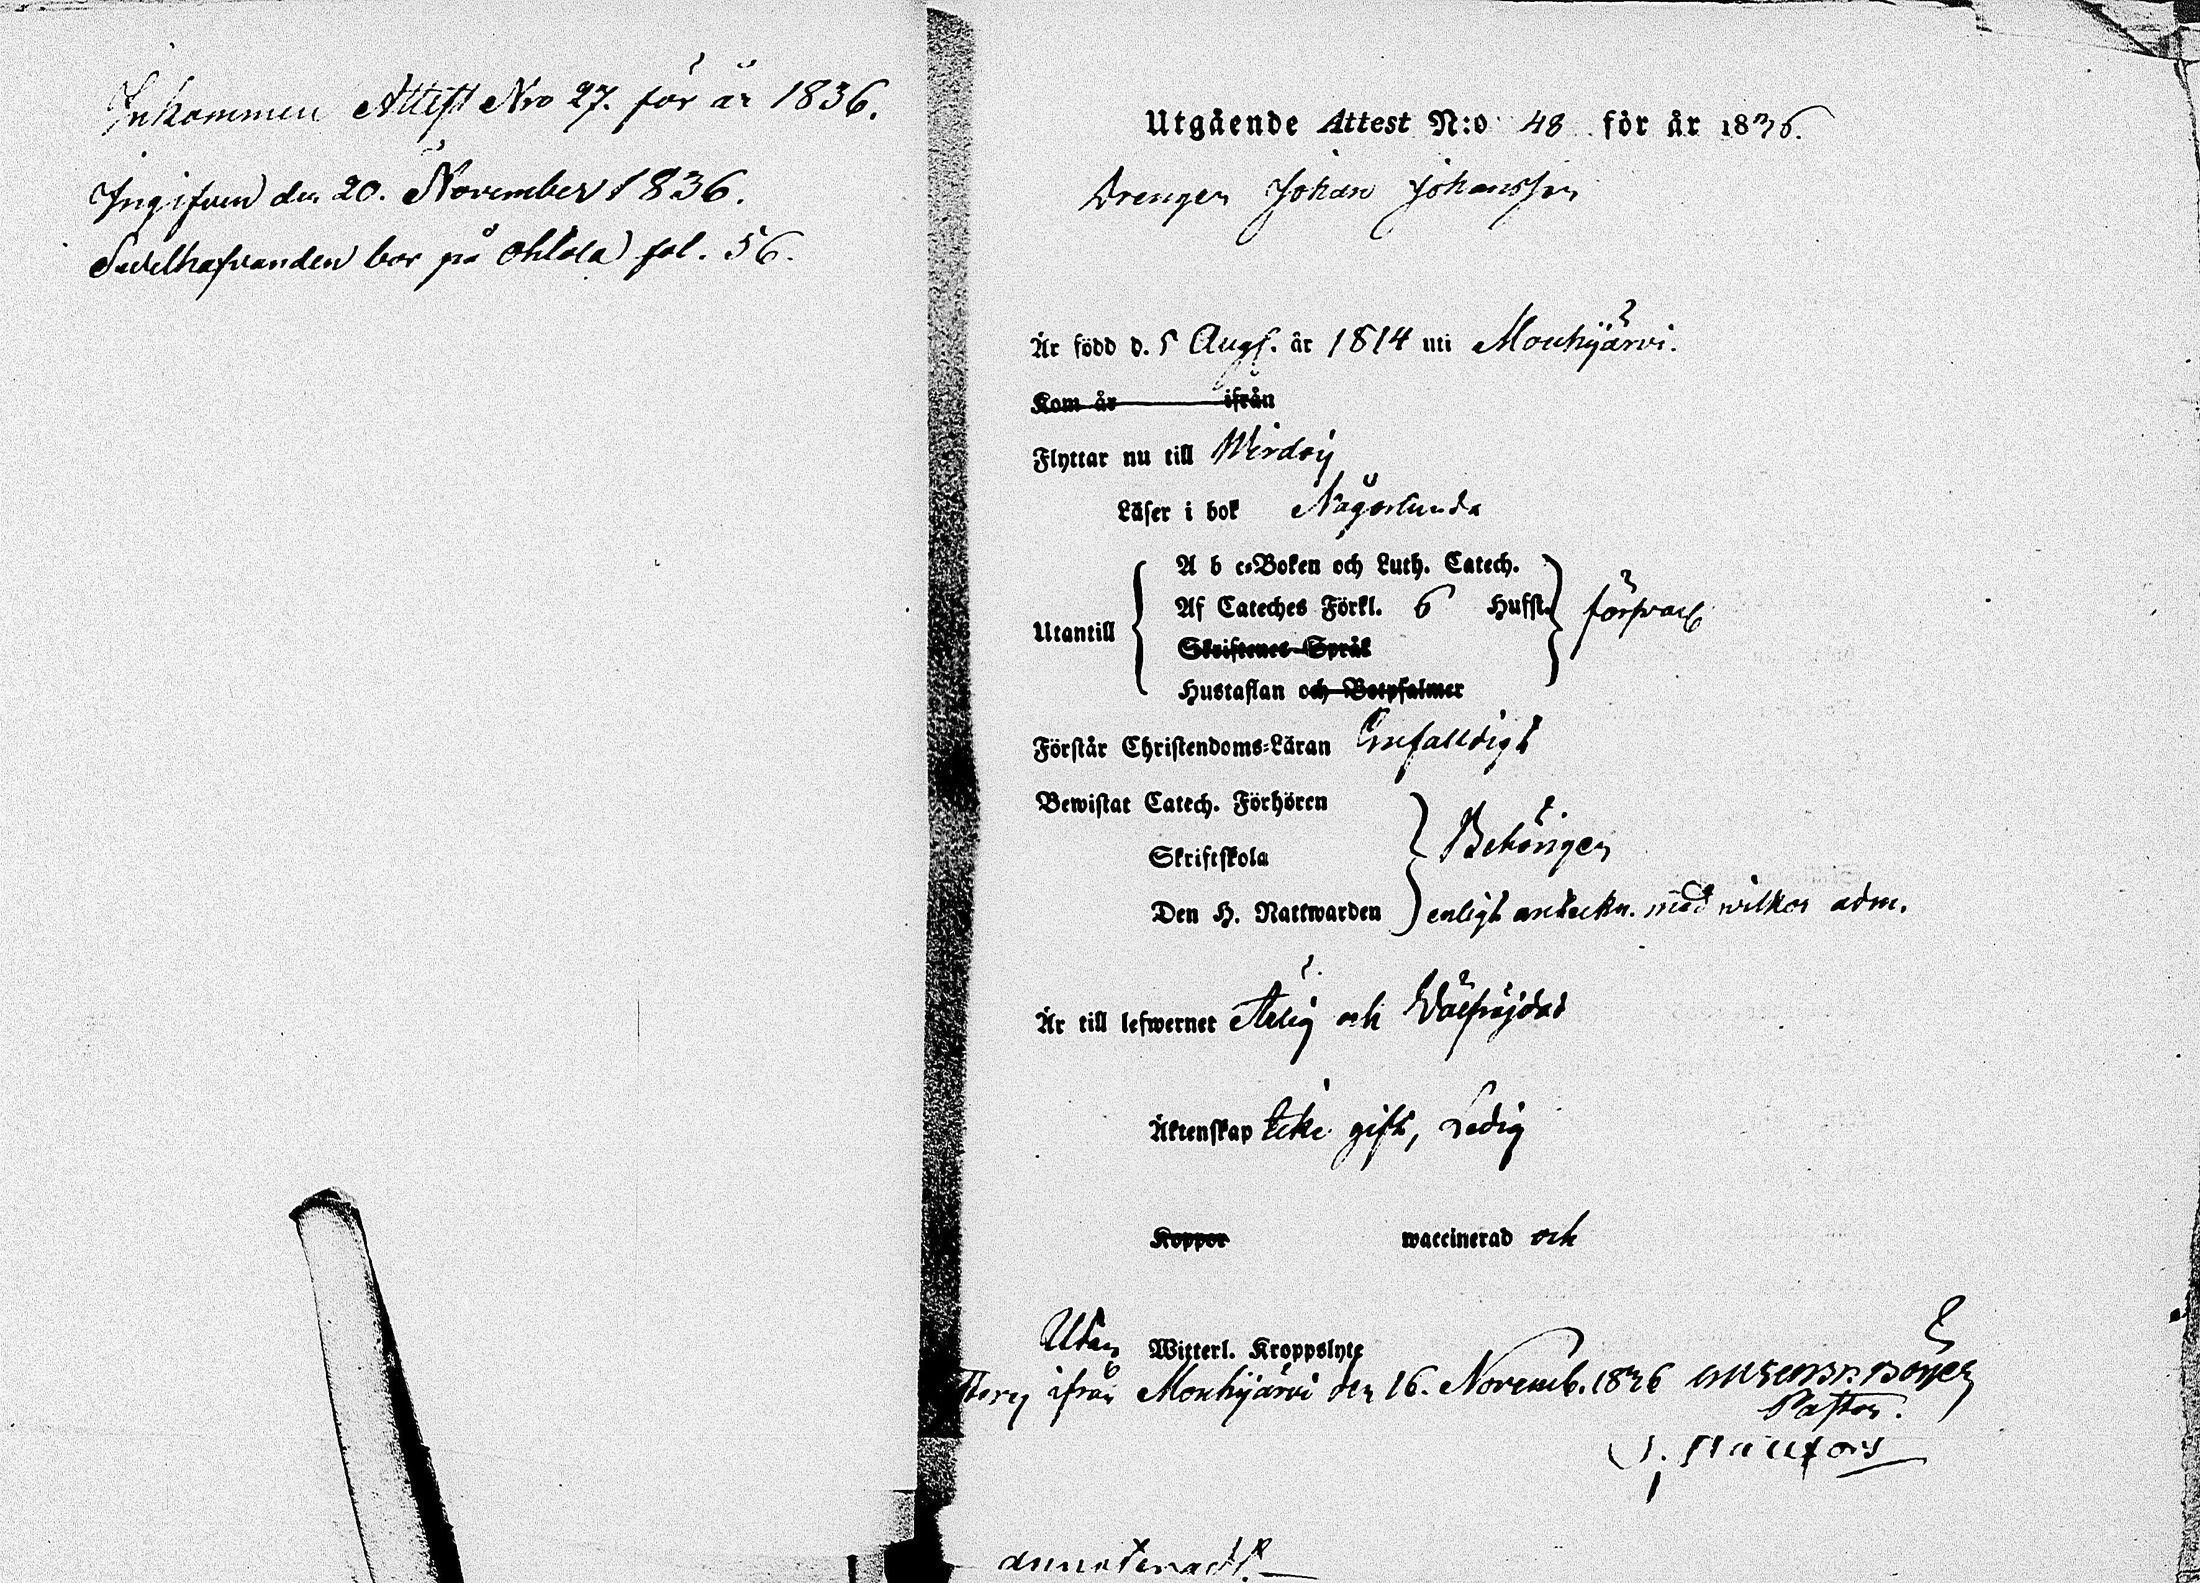 Inkommen Attest Nro 27. för år 1836.
Ingifven den 20. November 1836.
Sedelhafvanden bor på Ohlola fol. 56.
Utgående Attest N:o 48 för år 1836.
Drengen Johan Johansson
Är född d. 5 Aug. år 1814 uti Mouhijärvi.
Kom år ifrån
Flyttar nu till Wirdoij
Läser i bok Någorlunda
Utantill
A b c-Boken och Luth. Catech.
Af Cateches Förkl. 6 Hufst.
Skriftenes Språk
Hustaflan och Botpsalmer
försvarl
Förstår Christendoms-Läran Enfaldigt
Bewistat Catech. Förhören
Skriftskola
Behörigen
Den H. Nattwarden enligt anteckn. med wilkor adm.
Är till lefwernet Ärlig och Wälfrejdad
Äktenskap Icke gift, Ledig
Koppor waccinerad och
Utan Witterl. Kroppslyte
ifrån Mouhijärvi den 16. Novemb. 1836
Pastor.